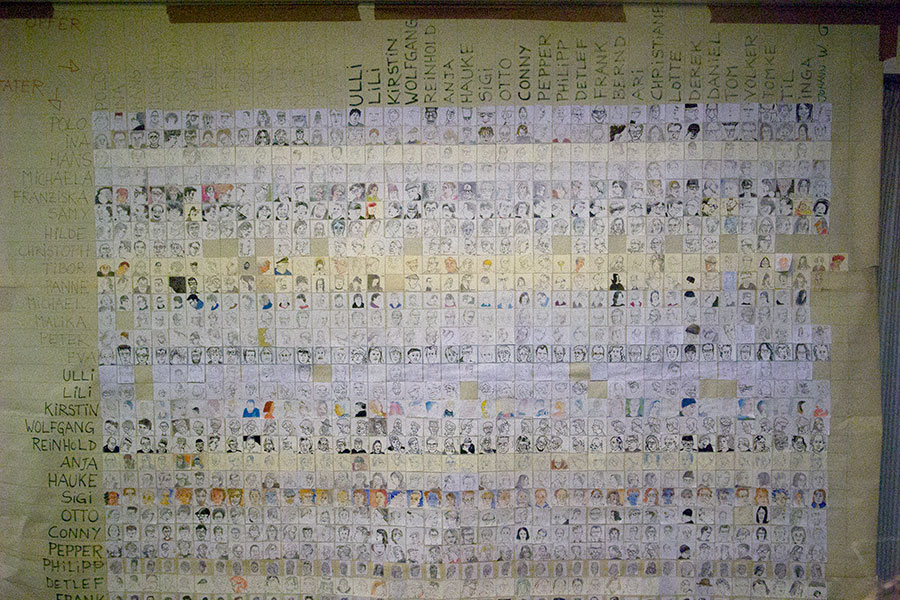 OPFER
TÄTER
ULLI
LILI
KIRSTIN
WOLFGANG
REINHOLD
ANJA
HAUKE
SIGI
OTTO
CONNY
PEPPER
PHILIPP
DETLEF
FRANK
BERND
ARI
CHRISTIANE
LOTTE
DEREK
DANIEL
TOM
VOLKER
TOMKE
TIL
INGA
POLO
INA
HANS
MICHAELA
FRANZISKA
SAMY
HILDE
CHRISTOPH
TIBOR
MICHAEL
MALIKA
PETER
EVA
ULLI
LILI
KIRSTIN
WOLFGANG
REINHOLD
ANJA
HAUKE
SIGI
OTTO
CONNY
PEPPER
PHILIPP
DETLEF
FRANK